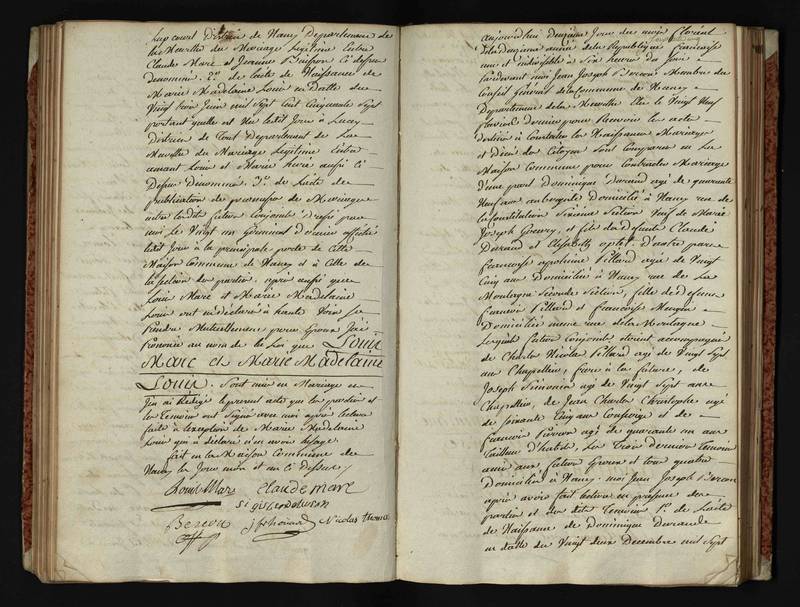 court District de Nancy Departement de
la Meurthe du Mariage legitime entre
Claude Marc et Jeanne Buisson ci dessus
denommé. 2.º de l'acte de Naissance de
Marie Madelaine Louis en datte du
Vingt trois Juin mil Sept Cent Cinquante Sept
portant quelle est Née ledit Jour à Lucey
District de Toul Departement de La
Meurthe du Mariage legitime entre
amant Louis et Marie aussi Ci
Dessus Denommés. 3.º de l'acte de
publication de promesse de Mariage
entre lesdits futurs Conjoints dressé par
moi le Vingt un Germinal dernier affiché
ledit Jour à la principale porte de Cette
Maison Commune de Nancy et à Celle de
la Section des parties. après aussi que
Louis Marc et Marie Madelaine
Louis ont eu déclaré à haute Voix Se
prendre Mutuellement pour Epoux J'ai
prononcé au nom de la Loi que Louis
Marc et Marie Madelaine
Louis. Sont unis en Mariage et
J'en ai Rédigé le present acte que les parties et
les Temoins ont Signé avec moi après lecture
faite à l'exception de Marie Madelaine
Louis qui a declaré n'en avoir l'usage.
fait en la Maison Commune de
Nancy les Jour mois et an Ci Dessus,
Louis Marc Claude marc
Nicolas
aujourd'hui Jour du mois floréal
de la Deuxieme année de la Republique francaise
une et indivisible à Six heures du Soir
pardevant moi Jean Joseph Membre du
Conseil Général de la Commune de Nancy
Departement de la Meurthe Elu le Vingt Neuf
dernier pour Recevoir les actes
destinés à Constater les Naissances Mariages
et Décès des Citoyens Sont Comparus en La
Maison Commune pour Contracter Mariage
d'une part Dominique Durand agé de quarante
Neuf ans aubergiste Domicilié à Nancy rue de
la Constitution Sixieme Section Veuf de Marie
Joseph et fils du défunt Claude
Durand et Elisabeth d'autre part
francoise apoline Pillard agée de Vingt
Cinq ans Domiciliée à Nancy rue de La
Montagne Seconde Section, fille de défunt
francois Pillard et francoise
Domiciliée meme rue de la Montagne
Lesquels futurs Conjoints etoient accompagnés
de Charles Nicolas Pillard agé de Vingt Sept
ans Chapellier, frere à la future, de
Joseph Simonin agé de Vingt Sept ans
Chapellier, de Jean Charles Christophe agé
de Soixante Cinq ans et de
francois agé de quarante un ans
Tailleur d'habits, Les Trois derniers Temoins
amis aux futurs Epoux et tous quatre
Domiciliés à Nancy. moi Jean Joseph
après avoir fait lecture en présence des
parties et des dits Temoins 1.º de l'acte
de Naissance de Dominique Durand
en datte du Vingt deux Decembre mil Sept